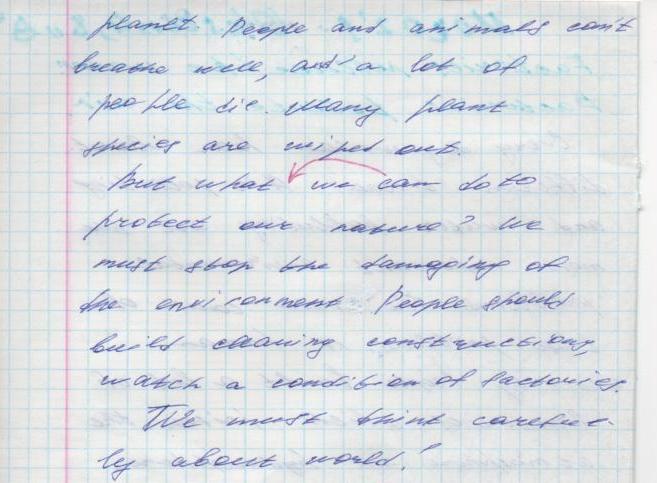 planet. People and animals can't
breathe well, and a lot of
people die. Many plant
species are wiped out.
But what we can do to
protect our nature? We
must stop the damaging of
the environment. People should
build cleaning constructions,
watch a condition of factories.
We must think careful-
ly about world!